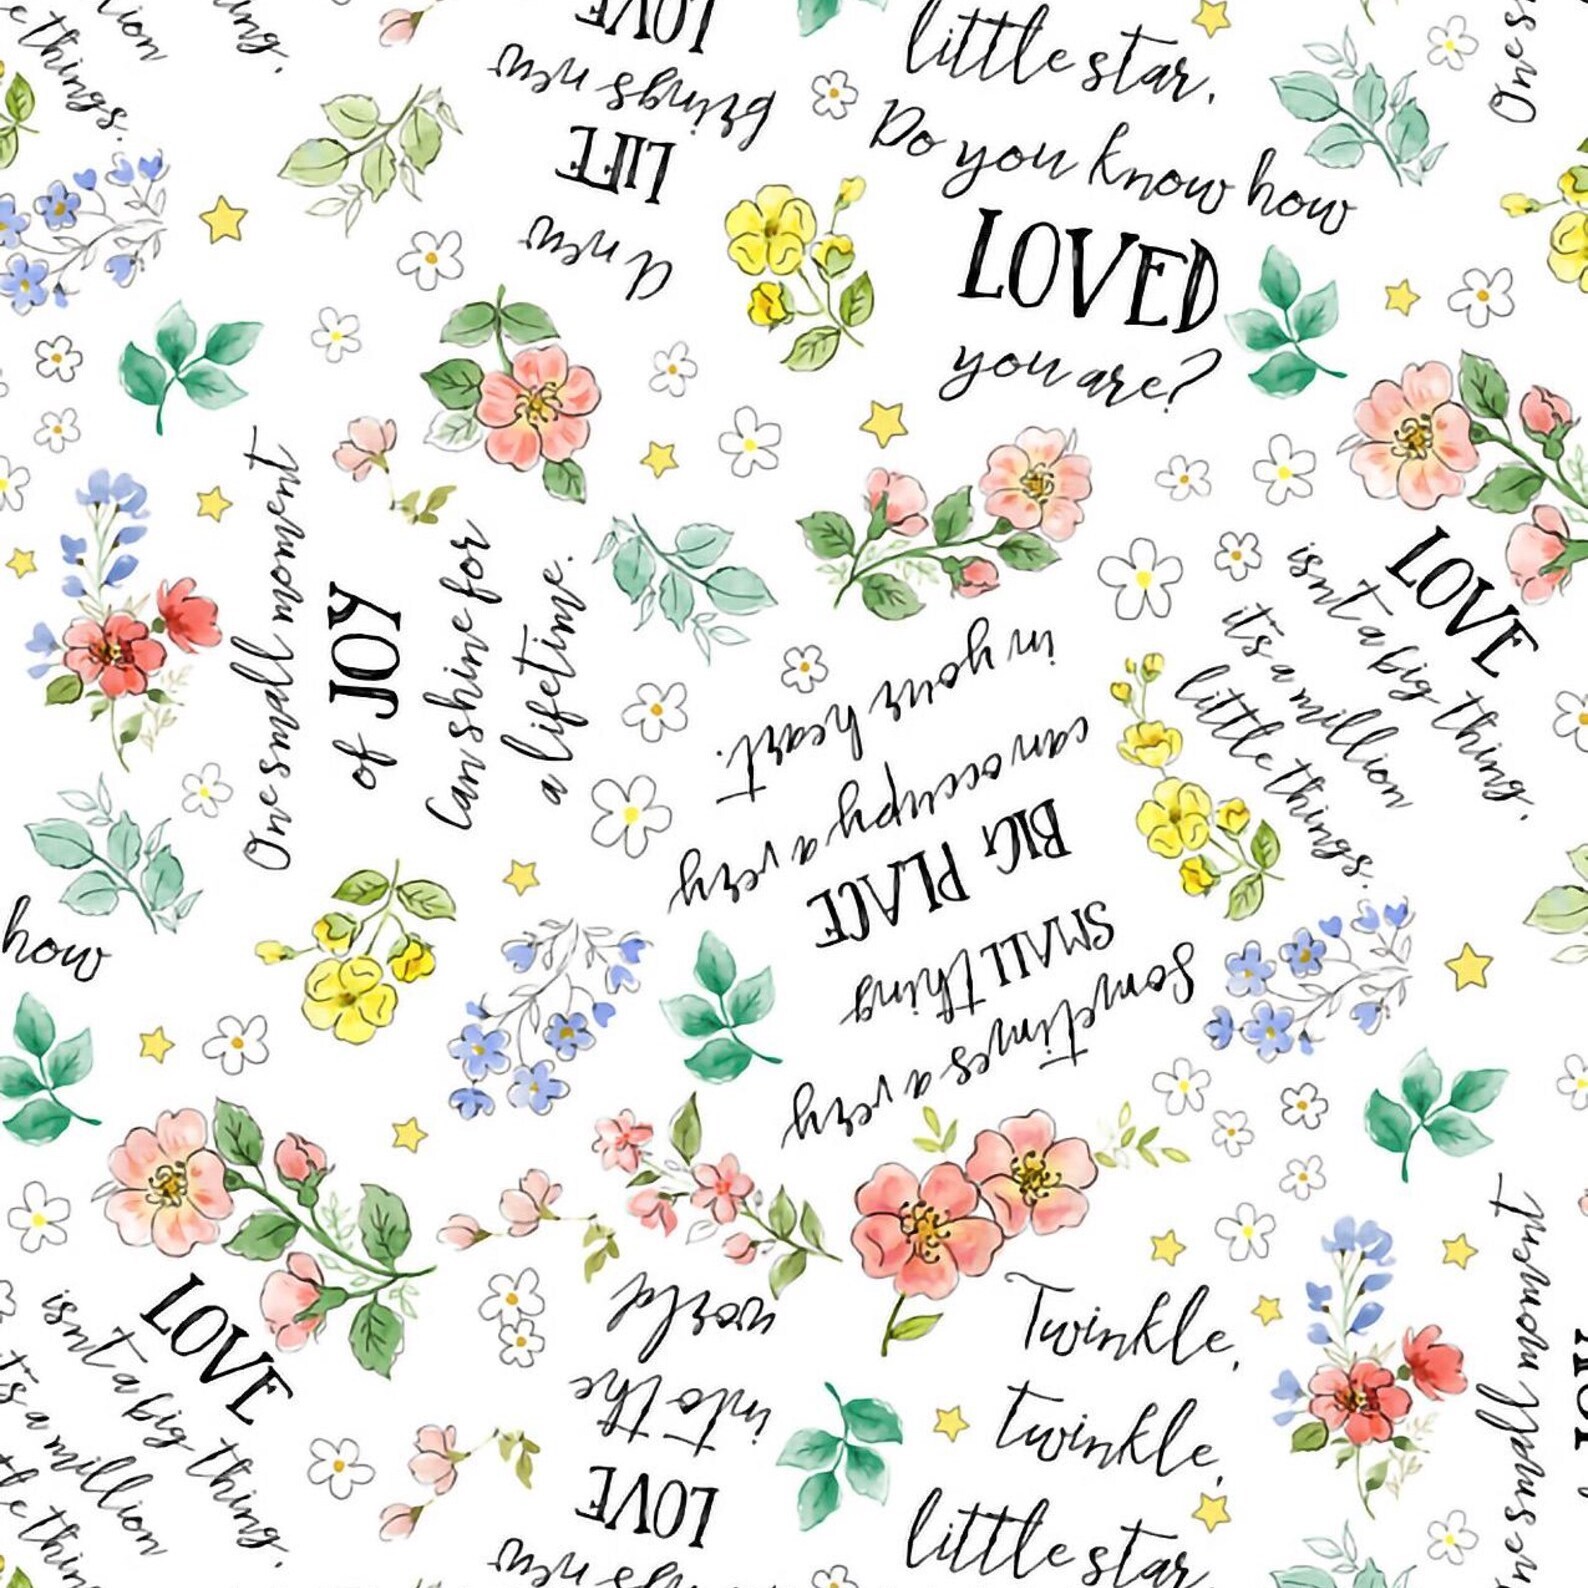 little things.
million
thing.
A new
LIFE
brings new
LOVE
little star.
Do you know how
LOVED
you are?
One s
One small moment
of JOY
Can shine for
a lifetime.
Sometimes a very
SMALL thing
can occupy a very
BIG PLACE
in your heart.
LOVE
isn't a big thing.
it's a million
little things.
how
LOVE
isn't a big thing.
it's a million
little things
gs new
LOVE
into the
world
Twinkle,
twinkle,
little star
One small moment